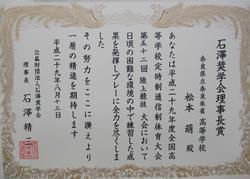 石澤奨学会理事長賞
奈良県立奈良朱雀高等学校
松本 萌 殿
あなたは平成二十九年度全国高
等学校定時制通信制体育大会
第五十二回陸上競技大会において
日頃の困難な環境の中で練習した成
果を発揮しプレーに全力を尽くしま
した
その努力をここに讃えより
一層の精進を期待します
平成二十九年八月十三日
公益財団法人石澤奨学会
理事長 石澤精一